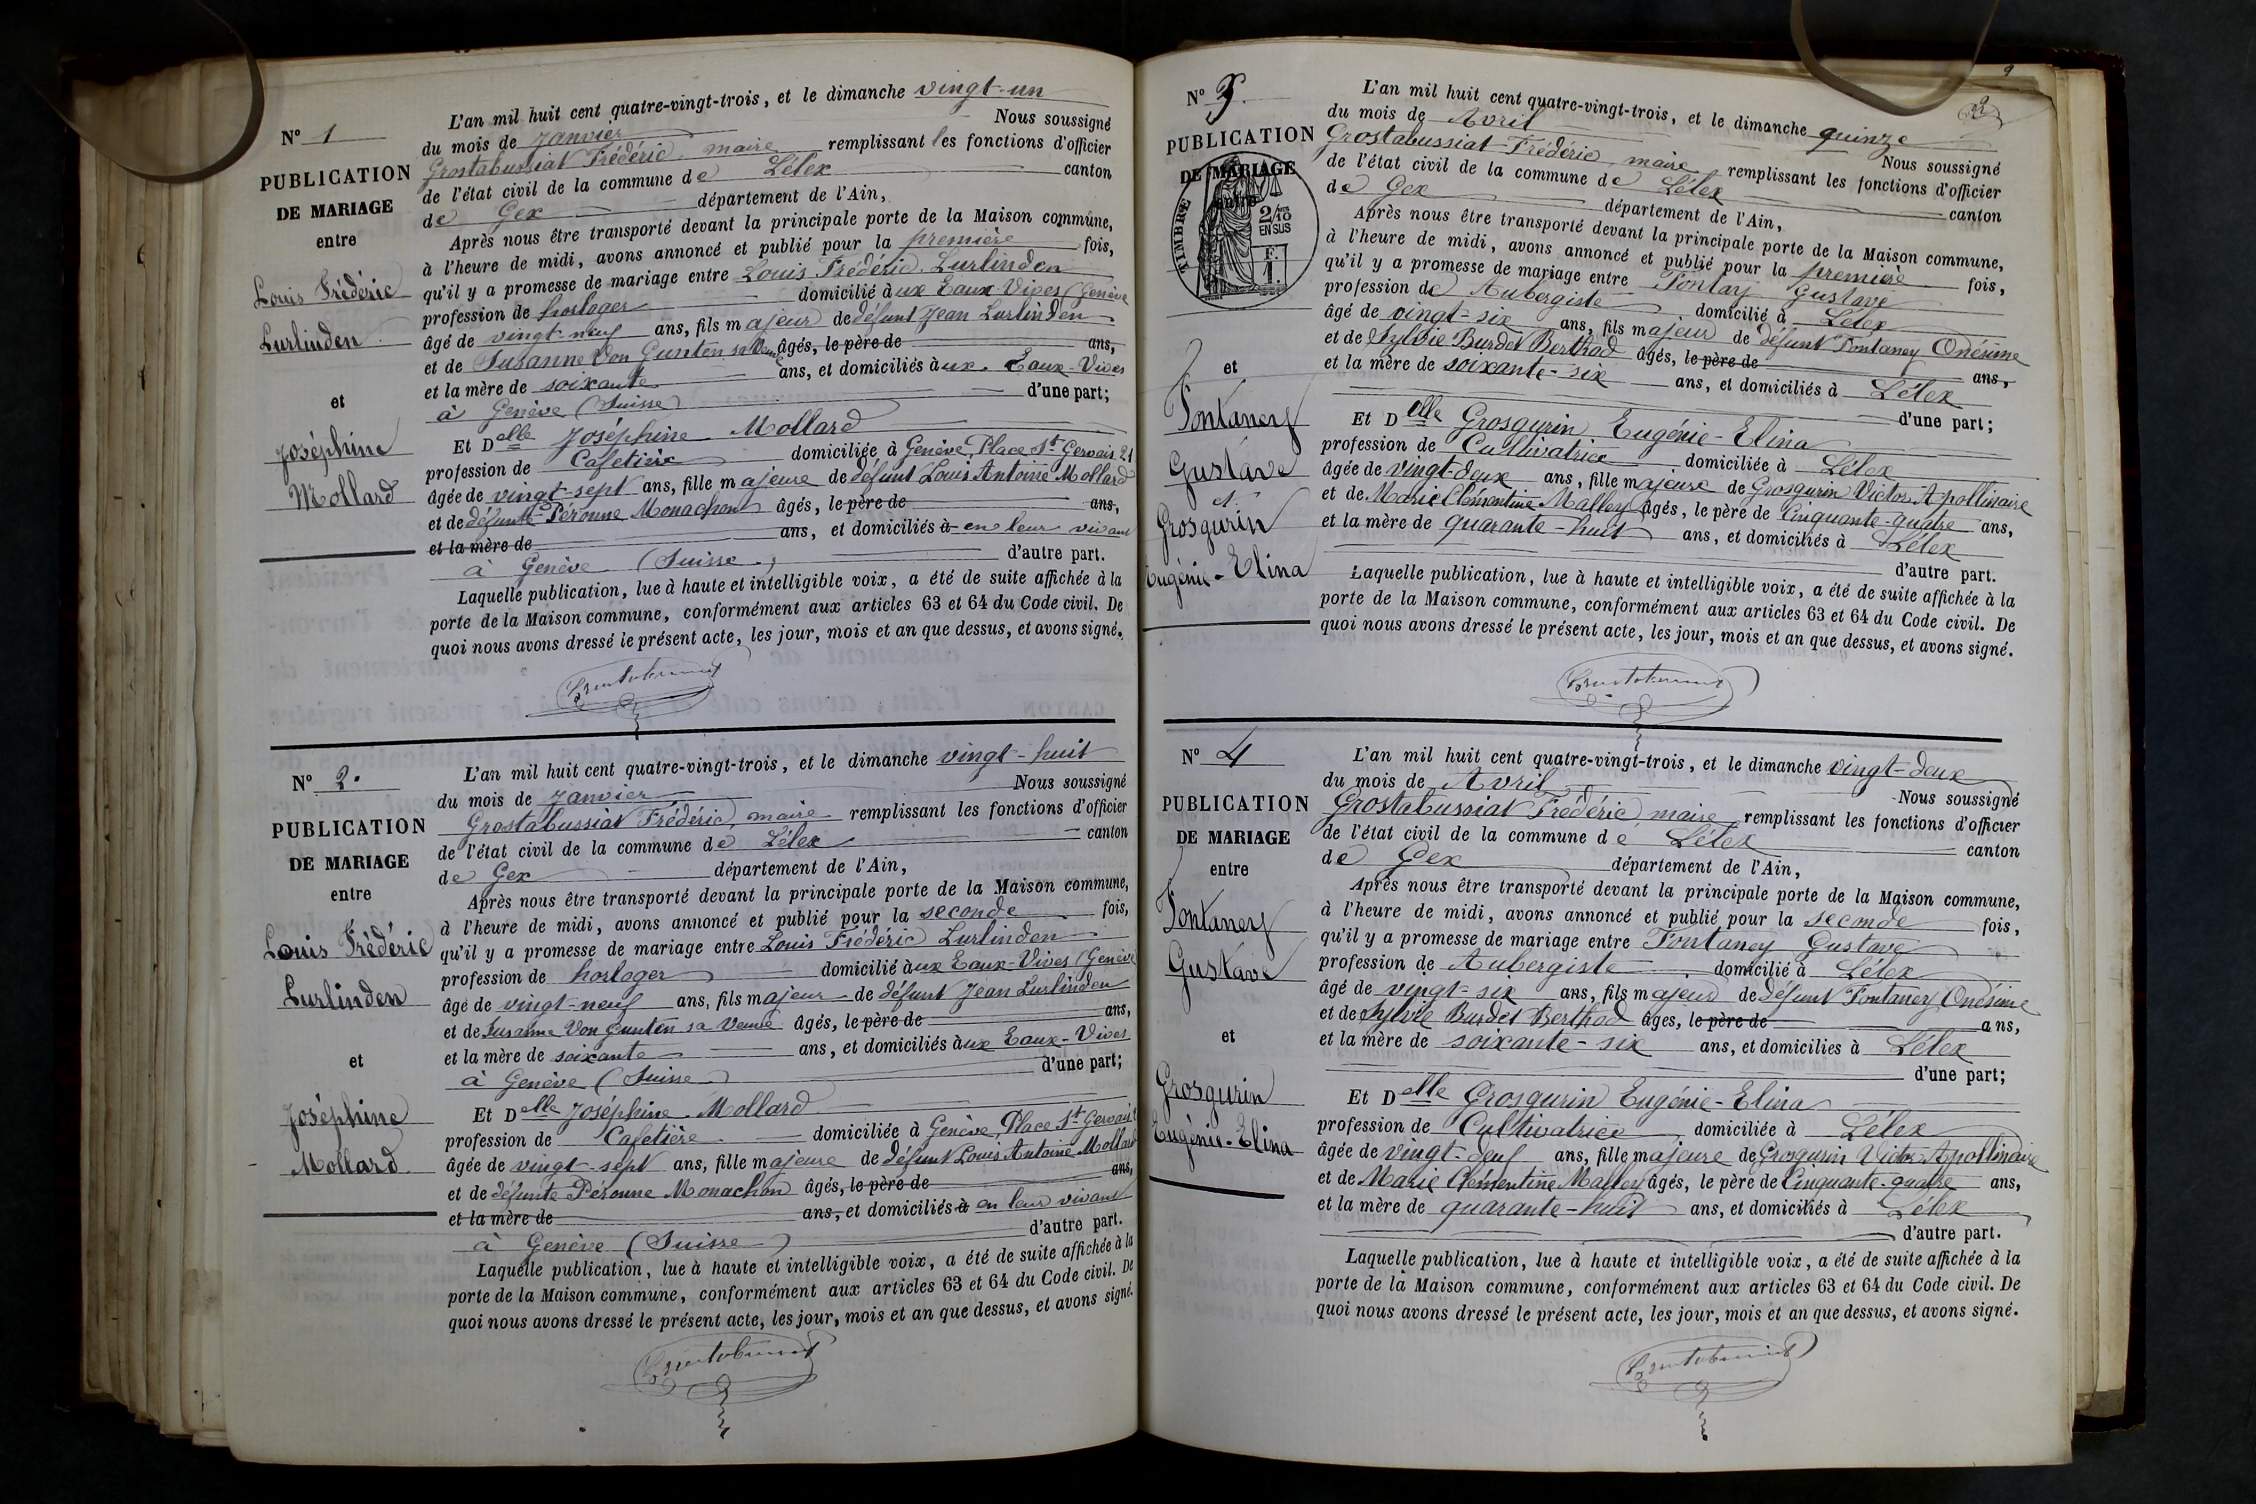 N° 1
PUBLICATION
DE MARIAGE
entre
Louis Frédéric
Lurlinden
et
Joséphine
Mollard
L'an mil huit cent quatre-vingt-trois, et le dimanche vingt-un
du mois de Janvier Nous soussigné
Grostabussiat Frédéric, maire remplissant les fonctions d'officier
de l'état civil de la commune de Lélex canton
de Gex département de l'Ain,
Après nous être transporté devant la principale porte de la Maison commune,
à l'heure de midi, avons annoncé et publié pour la première fois,
qu'il y a promesse de mariage entre Louis Frédéric Lurlinden
profession de horloger domicilié aux Eaux-Vives (Genève
âgé de vingt-neuf ans, fils majeur de défunt Jean Lurlinden
et de Susanne Von Gunten sa veuve âgés, le père de ans,
et la mère de soixante ans, et domiciliés aux Eaux-Vives
à Genève (Suisse) d'une part;
Et Delle Joséphine Mollard
profession de Cafetière domiciliée à Genève, Place St Gervais 21
âgée de vingt-sept ans, fille majeure de défunt Louis Antoine Mollard
et de défunte Péronne Monachon âgés, le père de ans,
et la mère de ans, et domiciliés à en leur vivant
à Genève (Suisse) d'autre part.
Laquelle publication, lue à haute et intelligible voix, a été de suite affichée à la
porte de la Maison commune, conformément aux articles 63 et 64 du Code civil. De
quoi nous avons dressé le présent acte, les jour, mois et an que dessus, et avons signé.
N° 2.
PUBLICATION
DE MARIAGE
entre
Louis Frédéric
Lurlinden
et
Joséphine
Mollard
L'an mil huit cent quatre-vingt-trois, et le dimanche vingt-huit
du mois de Janvier Nous soussigné
Grostabussiat Frédéric, maire remplissant les fonctions d'officier
de l'état civil de la commune de Lélex canton
de Gex département de l'Ain,
Après nous être transporté devant la principale porte de la Maison commune,
à l'heure de midi, avons annoncé et publié pour la seconde fois,
qu'il y a promesse de mariage entre Louis Frédéric Lurlinden
profession de horloger domicilié aux Eaux-Vives (Genève
âgé de vingt-neuf ans, fils majeur de défunt Jean Lurlinden
et de Susanne Von Gunten sa veuve âgés, le père de ans,
et la mère de soixante ans, et domiciliés aux Eaux-Vives
à Genève (Suisse) d'une part;
Et Delle Joséphine Mollard
profession de Cafetière domiciliée à Genève, Place St Gervais
âgée de vingt-sept ans, fille majeure de défunt Louis Antoine Mollard
et de défunte Péronne Monachon âgés, le père de ans,
et la mère de ans, et domiciliés à en leur vivant
à Genève (Suisse) d'autre part.
Laquelle publication, lue à haute et intelligible voix, a été de suite affichée à la
porte de la Maison commune, conformément aux articles 63 et 64 du Code civil. De
quoi nous avons dressé le présent acte, les jour, mois et an que dessus, et avons signé.
9
N° 3.
PUBLICATION
DE MARIAGE
entre
TIMBRE
2/10
EN SUS
F.
1.
et
Fontaney
Gustave
et
Grosgurin
Eugénie-Elina
L'an mil huit cent quatre-vingt-trois, et le dimanche quinze
du mois de Avril Nous soussigné
Grostabussiat Frédéric, maire remplissant les fonctions d'officier
de l'état civil de la commune de Lélex canton
de Gex département de l'Ain,
Après nous être transporté devant la principale porte de la Maison commune,
à l'heure de midi, avons annoncé et publié pour la première fois,
qu'il y a promesse de mariage entre Fontay Gustave
profession de Aubergiste domicilié à Lélex
âgé de vingt-six ans, fils majeur de défunt Fontaney Onésime
et de Sylvie Burdet Berthod âgés, le père de ans,
et la mère de soixante-six ans, et domiciliés à Lélex
d'une part;
Et Delle Grosgurin Eugénie-Elina
profession de Cultivatrice domiciliée à Lélex
âgée de vingt-deux ans, fille majeure de Grosgurin Victor Apollinaire
et de Marie Clémentine Malley âgés, le père de Cinquante-quatre ans,
et la mère de quarante-huit ans, et domiciliés à Lélex
d'autre part.
Laquelle publication, lue à haute et intelligible voix, a été de suite affichée à la
porte de la Maison commune, conformément aux articles 63 et 64 du Code civil. De
quoi nous avons dressé le présent acte, les jour, mois et an que dessus, et avons signé.
N° 4
PUBLICATION
DE MARIAGE
entre
Fontaney
Gustave
et
Grosgurin
Eugénie-Elina
L'an mil huit cent quatre-vingt-trois, et le dimanche vingt-deux
du mois de Avril Nous soussigné
Grostabussiat Frédéric, maire remplissant les fonctions d'officier
de l'état civil de la commune de Lélex canton
de Gex département de l'Ain,
Après nous être transporté devant la principale porte de la Maison commune,
à l'heure de midi, avons annoncé et publié pour la seconde fois,
qu'il y a promesse de mariage entre Fontaney Gustave
profession de Aubergiste domicilié à Lélex
âgé de vingt-six ans, fils majeur de défunt Fontaney Onésime
et de Sylvie Burdet Berthod âgés, le père de ans,
et la mère de soixante-six ans, et domiciliés à Lélex
d'une part;
Et Delle Grosgurin Eugénie-Elina
profession de Cultivatrice domiciliée à Lélex
âgée de vingt-deux ans, fille majeure de Grosgurin Victor Apollinaire
et de Marie Clémentine Malley âgés, le père de Cinquante-quatre ans,
et la mère de quarante-huit ans, et domiciliés à Lélex
d'autre part.
Laquelle publication, lue à haute et intelligible voix, a été de suite affichée à la
porte de la Maison commune, conformément aux articles 63 et 64 du Code civil. De
quoi nous avons dressé le présent acte, les jour, mois et an que dessus, et avons signé.